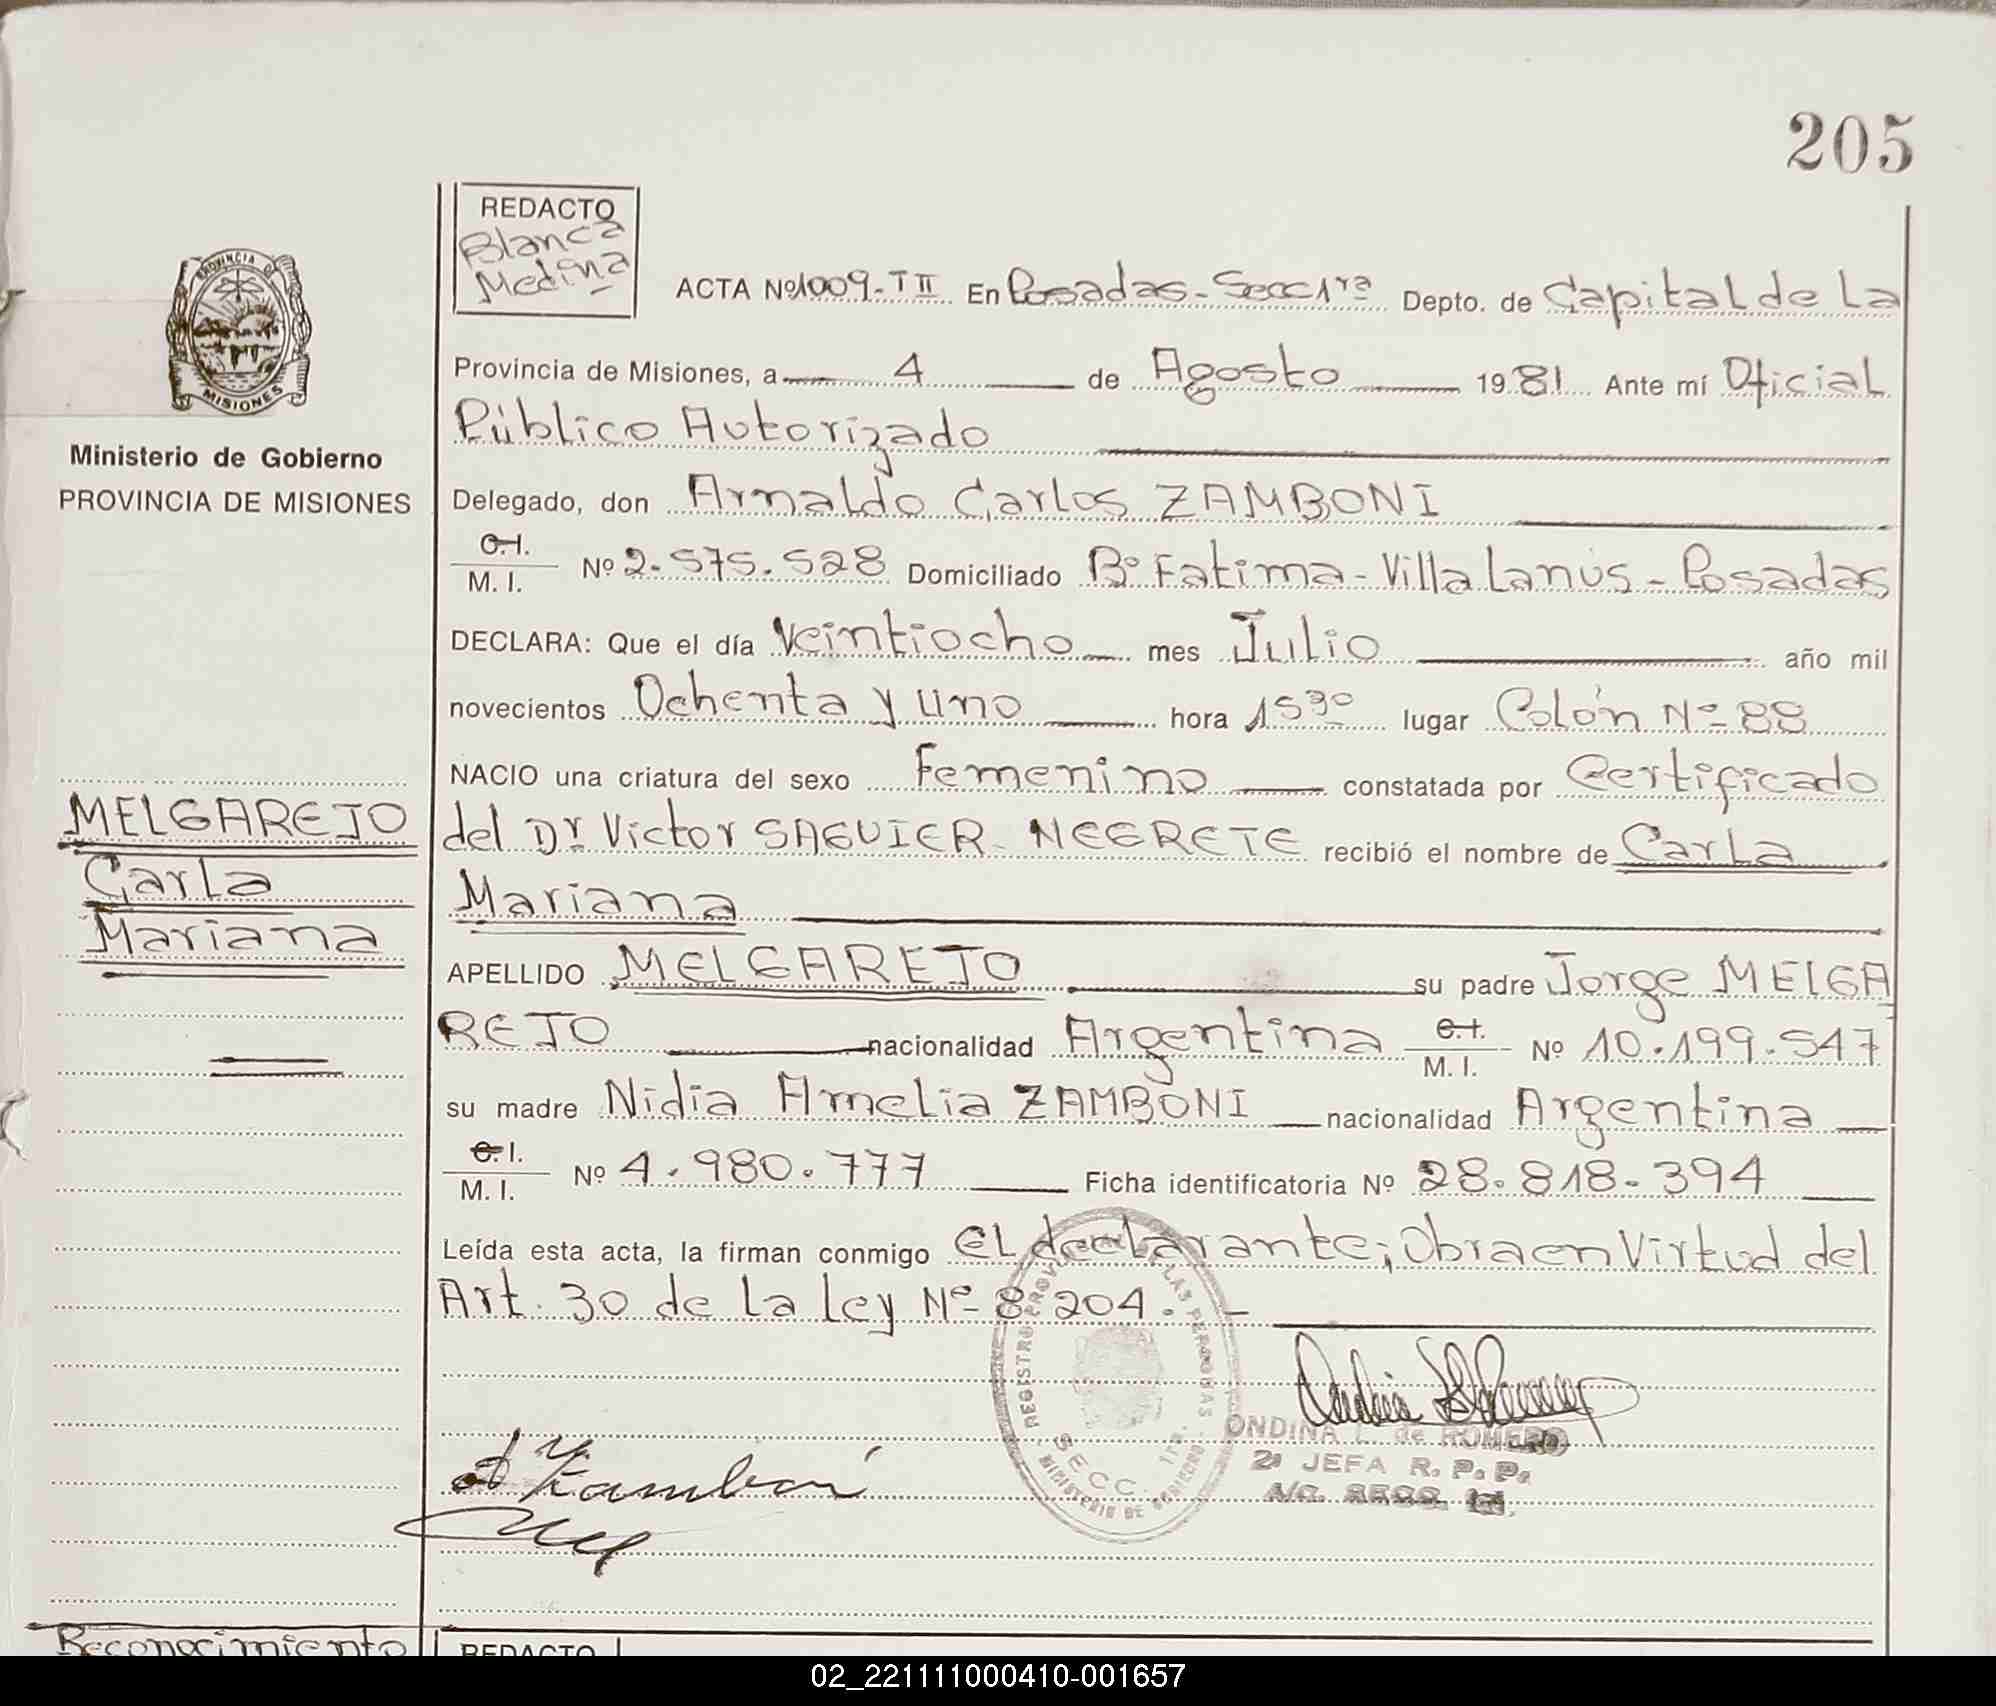 205
REDACTO
Blanca
Medina
ACTA Nº1009-T II En Posadas-Secc 1ra Depto. de Capital de La
Provincia de Misiones, a 4 de Agosto 1981 Ante mí Oficial
Público Autorizado
Delegado, don Arnaldo Carlos ZAMBONI
C.I.
M. I. Nº 2.575.528 Domiciliado Bº Fatima-Villa Lanús-Posadas
DECLARA: Que el día veintiocho mes Julio año mil
novecientos Ochenta y uno hora 15 30 lugar Colón Nº 88
NACIO una criatura del sexo Femenino constatada por Certificado
del Dr Victor SAGUIER NEGRETE recibió el nombre de Carla
Mariana
APELLIDO MELGAREJO su padre Jorge MELGA
REJO nacionalidad Argentina C.I. M. I. Nº 10.199.547
su madre Nidia Amelia ZAMBONI nacionalidad Argentina
C.I.
M. I. Nº 4.980.777 Ficha identificatoria Nº 28.818.394
Leída esta acta, la firman conmigo el declarante; Obra en Virtud del
Art. 30 de la ley Nº 8 204.-
PROVINCIA DE
MISIONES
Ministerio de Gobierno
PROVINCIA DE MISIONES
MELGAREJO
Carla
Mariana
REGISTRO PROV. DE LAS PERSONAS
SECC. 1ra.
MINISTERIO DE GOBIERNO
ONDINA L. de ROMERO
2ª JEFA R. P. P.
A/C. SECC. 1ª.
A Zamboni
Reconocimiento
REDACTO
02_221111000410-001657